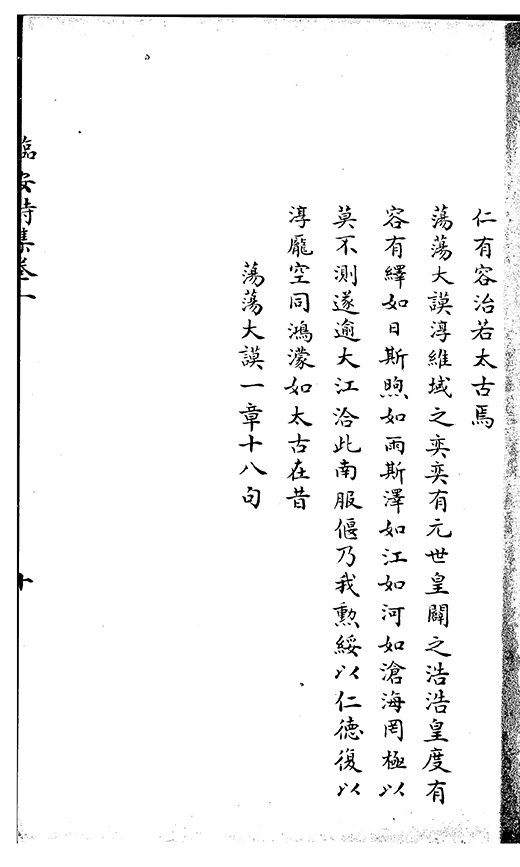 仁有容治若太古焉
蕩蕩大謨淳維域之奕奕有元世皇闢之浩浩皇度有
容有繹如日斯煦如雨斯澤如江如河如滄海罔極以
莫不測遂逾大江洽此南服偃乃我勲綏以仁德復以
淳龐空同鴻濛如太古在昔
蕩蕩大謨一章十八句
臨安詩集卷一
十